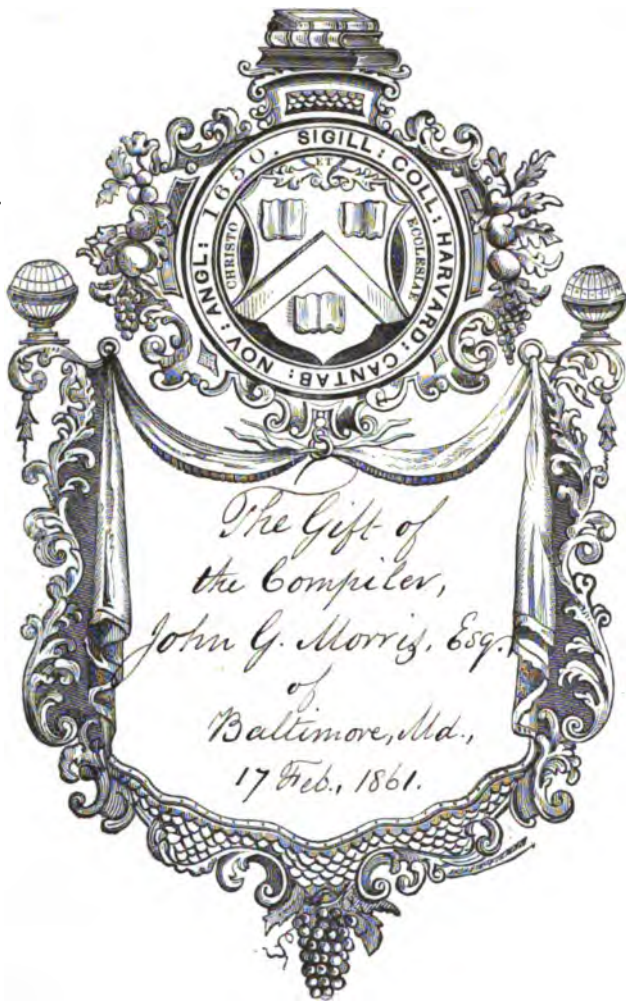 SIGILL: COLL: HARVARD: CANTAB: NOV: ANGL: 1650.
ET
CHRISTO
ECCLESIAE
The Gift of
the Compiler,
John G. Morris, Esq.
of
Baltimore, Md.,
17 Feb., 1861.